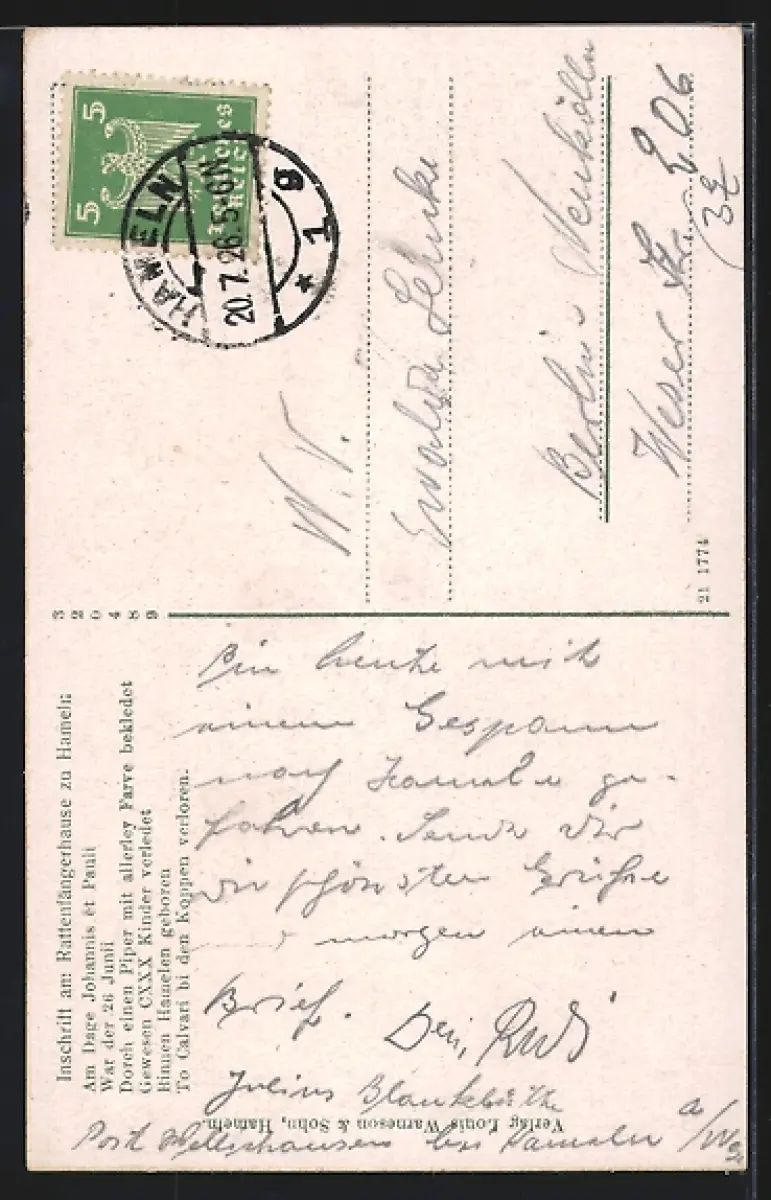 Inschrift am Rattenfängerhause zu Hameln:
Am Dage Johannis et Pauli
War der 26 Junii
Dorch einen Piper mit allerley Farve bekledet
Gewesen CXXX Kinder verledet
Binnen Hamelen geboren
To Calvari bi den Koppen verloren.
320489
Bin heute mit
einem Gespann
nach Hameln ge-
fahren. Sende Dir
die schönsten Grüße
morgen einen
Brief. Dein Rudi
Julius
Post bei Hameln a/W
Verlag Louis Warneson & Sohn, Hameln.
5 5
Deutsches Reich
HAMELN
20.7.26.5-6N
* 1 g
Berlin Neukölln
Weser Str. 206
21 1774